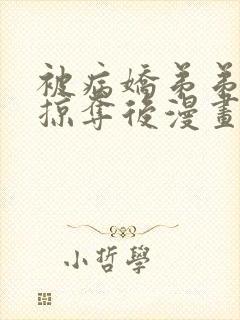 被病嬌弟弟
掠奪後漫畫
小哲學